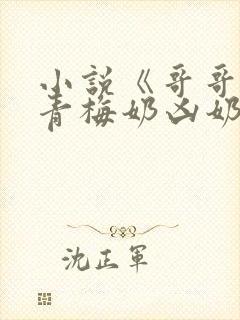 小説《哥哥
青梅奶凶奶
沈正軍